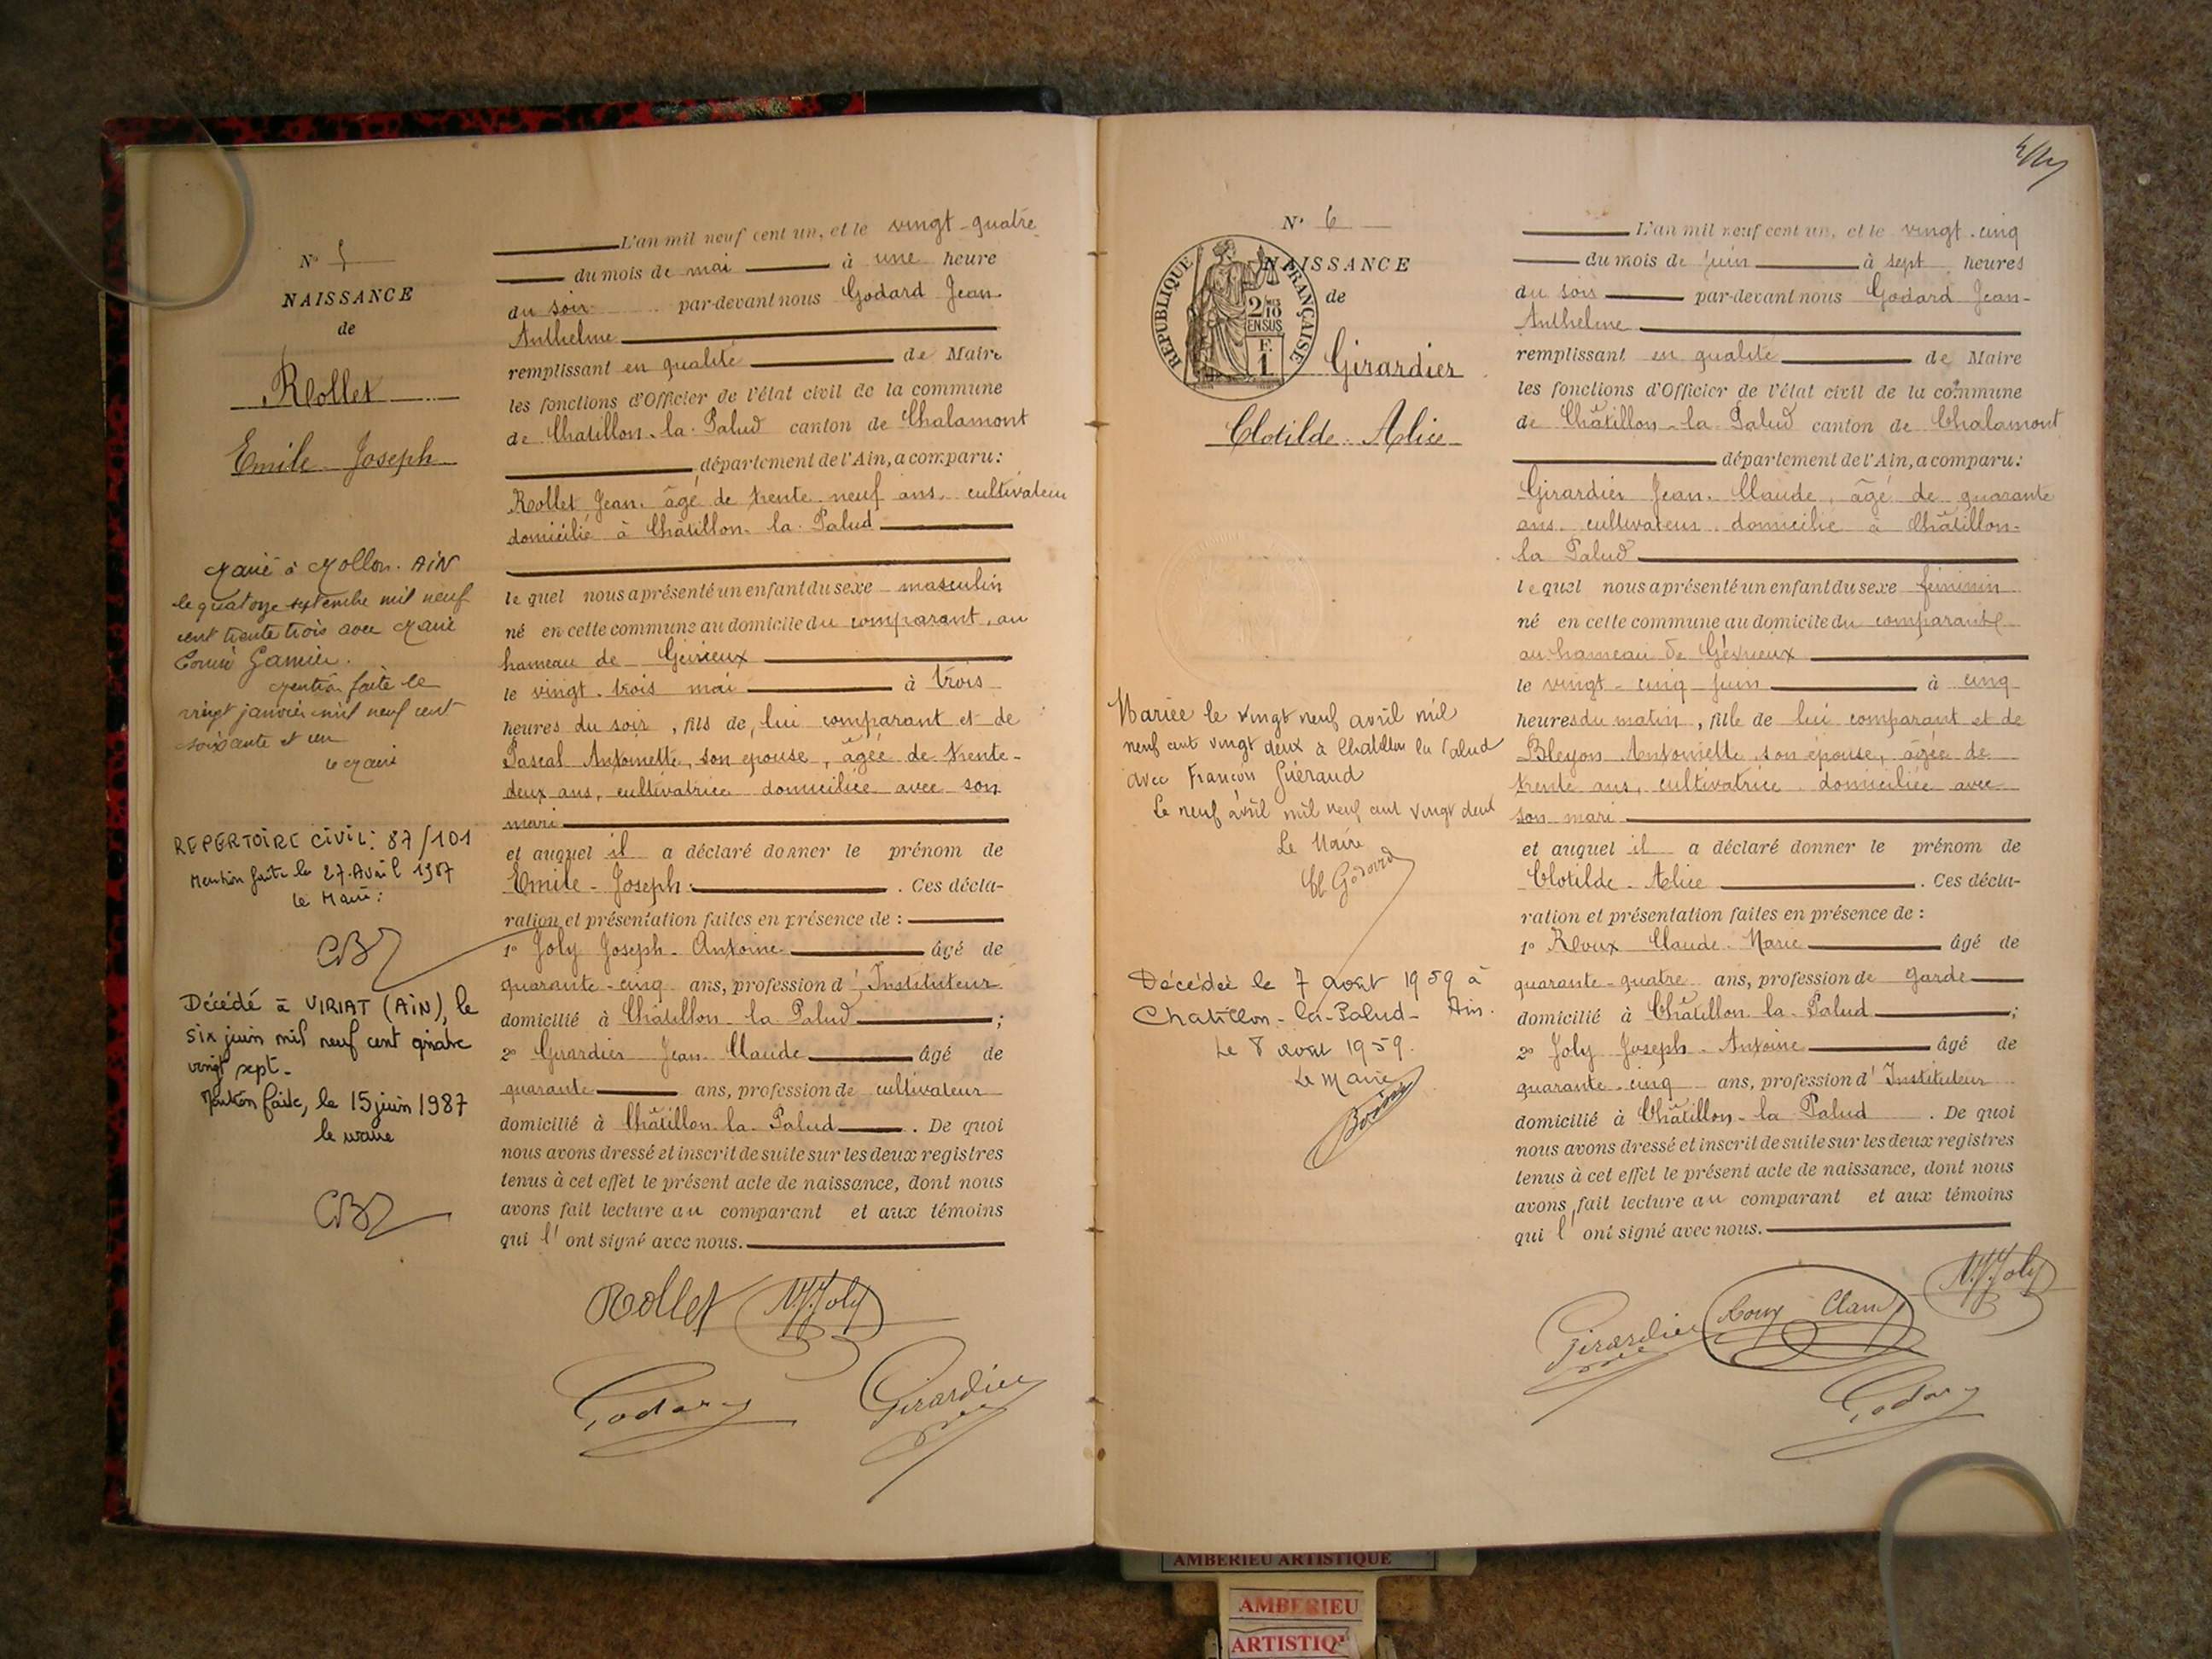 N° 5
NAISSANCE
de
Rollet
Emile Joseph
Marié à Mollon. AiN
le quatorze septembre mil neuf
cent trente trois avec Marie
Garnier.
Mention faite le
vingt janvier mil neuf cent
soixante et un
le Maire
REPERTOIRE CIVIL: 87/101
Mention faite le 27 Avril 1987
le Maire:
Décédé à VIRIAT (AiN), le
six juin mil neuf cent quatre
vingt sept.
Mention faite, le 15 juin 1987
le maire
L'an mil neuf cent un, et le vingt-quatre
du mois de mai à une heure
du soir par-devant nous Godard Jean
Anthelme
remplissant en qualité de Maire
les fonctions d'Officier de l'état civil de la commune
de Chatillon-la-Palud canton de Chalamont
département de l'Ain, a comparu:
Rollet Jean, âgé de trente-neuf ans, cultivateur
domicilié à Châtillon-la-Palud
lequel nous a présenté un enfant du sexe masculin
né en cette commune au domicile du comparant, au
hameau de Gévrieux
le vingt-trois mai à trois
heures du soir, fils de, lui comparant et de
Pascal Antoinette, son épouse, âgée de trente-
deux ans, cultivatrice domiciliée avec son
mari
et auquel il a déclaré donner le prénom de
Emile-Joseph. Ces décla-
ration et présentation faites en présence de :
1° Joly Joseph-Antoine âgé de
quarante-cinq ans, profession d'Instituteur
domicilié à Châtillon-la-Palud ;
2° Girardier Jean-Claude âgé de
quarante ans, profession de cultivateur
domicilié à Châtillon-la-Palud. De quoi
nous avons dressé et inscrit de suite sur les deux registres
tenus à cet effet le présent acte de naissance, dont nous
avons fait lecture au comparant et aux témoins
qui l'ont signé avec nous.
Rollet Joly
Godard Girardier
N° 6
NAISSANCE
de
REPUBLIQUE FRANÇAISE
2/10
EN SUS
F.
1
Girardier
Clotilde Alice
Mariée le vingt neuf avril mil
neuf cent vingt deux à Chatillon la Palud
avec François Guéraud
Le neuf avril mil neuf cent vingt deux
Le Maire
Godard
Décédée le 7 aout 1959 à
Chatillon-la-Palud-Ain.
Le 8 aout 1959.
Le Maire
L'an mil neuf cent un, et le vingt-cinq
du mois de juin à sept heures
du soir par-devant nous Godard Jean-
Anthelme
remplissant en qualité de Maire
les fonctions d'Officier de l'état civil de la commune
de Châtillon-la-Palud canton de Chalamont
département de l'Ain, a comparu:
Girardier Jean-Claude, âgé de quarante
ans cultivateur domicilié à Châtillon-
la Palud
lequel nous a présenté un enfant du sexe féminin
né en cette commune au domicile du comparant
au hameau de Gévrieux
le vingt-cinq juin à cinq
heures du matin, fille de lui comparant et de
Bleyon Antoinette son épouse, âgée de
trente ans, cultivatrice domiciliée avec
son mari
et auquel il a déclaré donner le prénom de
Clotilde-Alice. Ces décla-
ration et présentation faites en présence de :
1° Roux Claude-Marie âgé de
quarante-quatre ans, profession de garde
domicilié à Châtillon-la-Palud ;
2° Joly Joseph-Antoine âgé de
quarante-cinq ans, profession d'Instituteur
domicilié à Châtillon-la Palud. De quoi
nous avons dressé et inscrit de suite sur les deux registres
tenus à cet effet le présent acte de naissance, dont nous
avons fait lecture au comparant et aux témoins
qui l'ont signé avec nous.
Girardier Roux Claude Joly
Godard
AMBERIEU ARTISTIQUE
AMBERIEU
ARTISTIQ